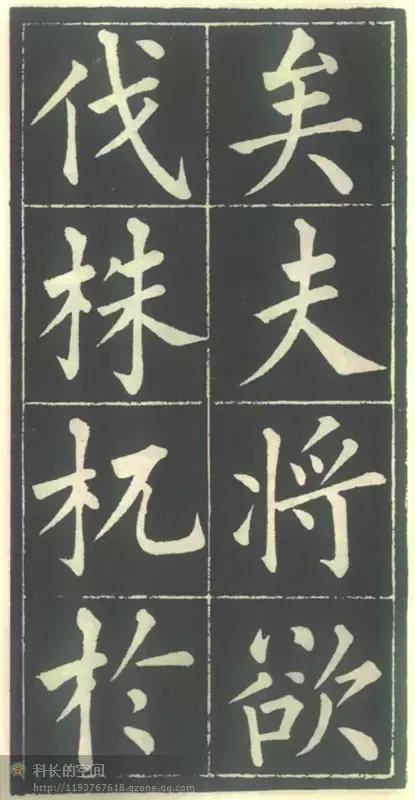 矣夫将欲
伐株杌於
科长的空间
http://1193767618.qzone.qq.com